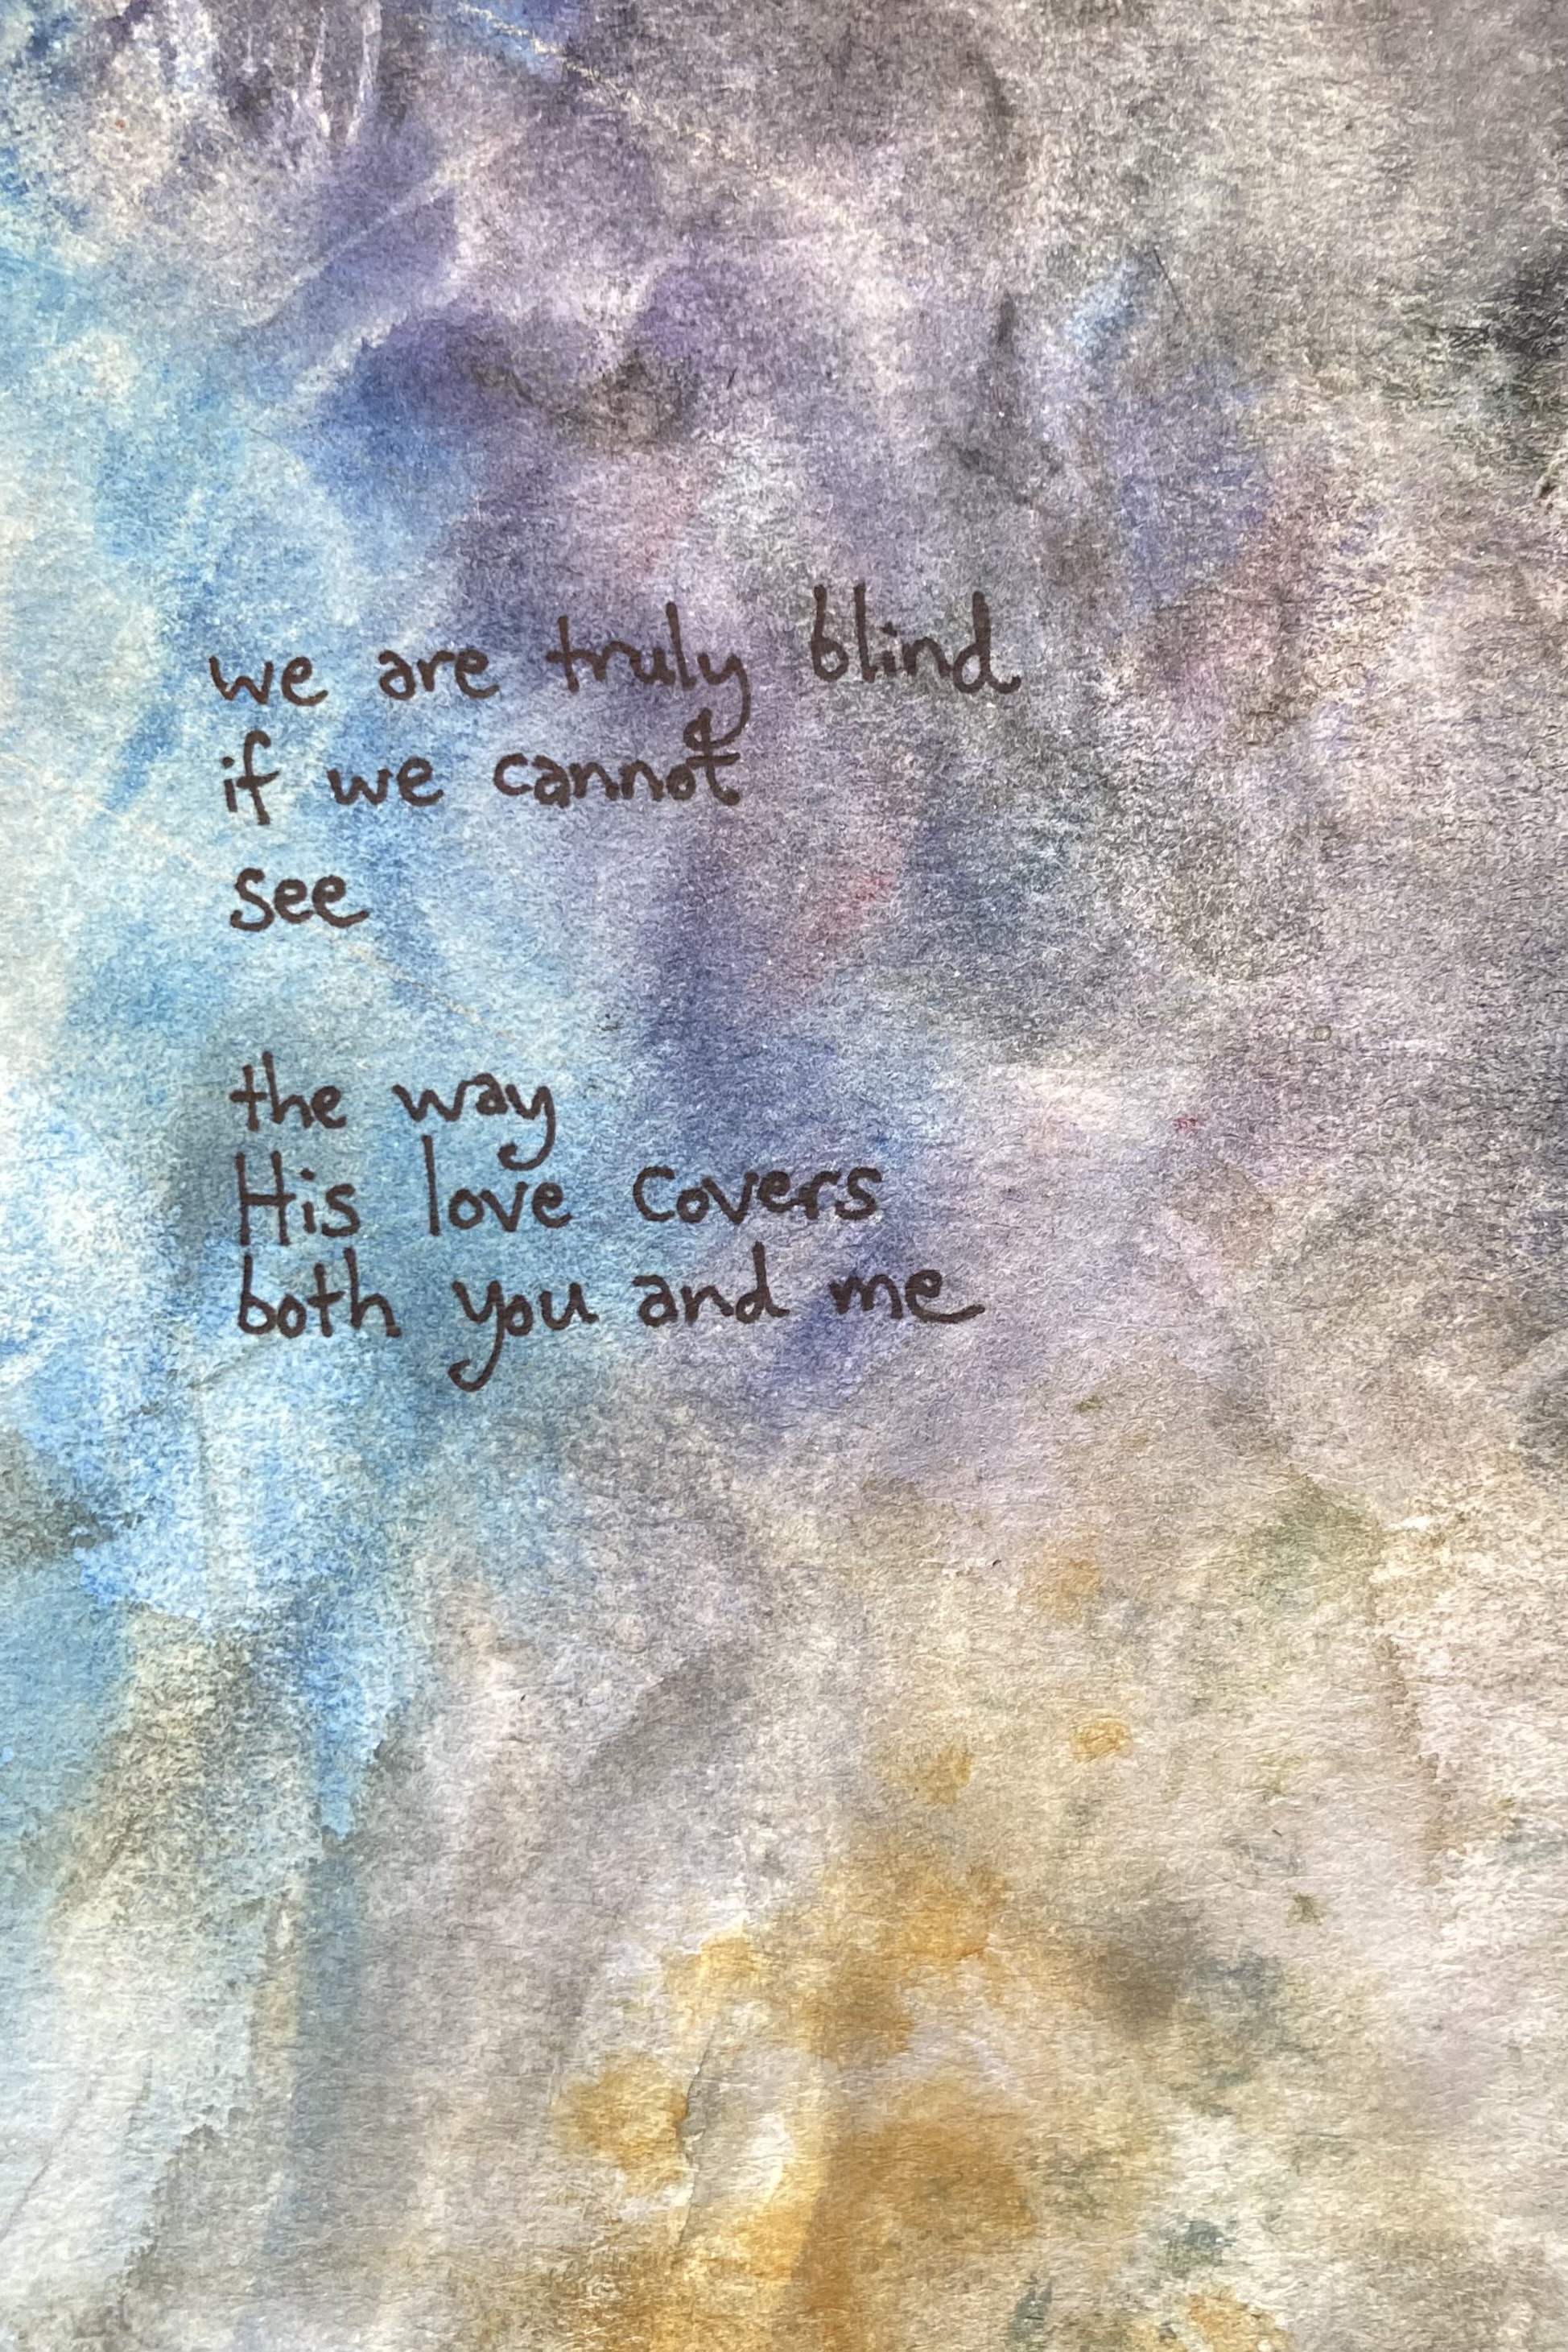 we are truly blind
if we cannot
see
the way
His love covers
both you and me